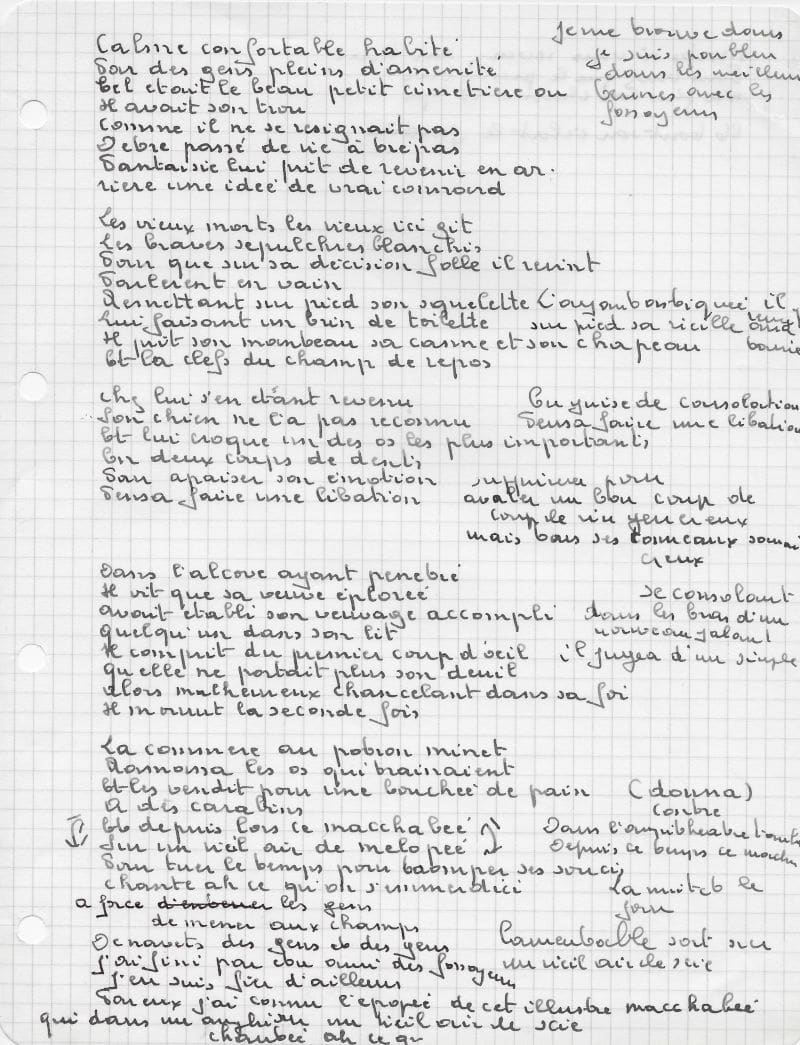 Calme confortable habité
Par des gens pleins d'amenité
Tel etait le beau petit cimetiere ou
Il avait son trou
Comme il ne se resignait pas
D'etre passé de vie à trepas
Fantaisie lui prit de revenir en ar.
riere une idée de vrai
je me trouve dans
je suis
dans les meilleurs
termes avec les
fossoyeurs
Les vieux morts les vieux ici git
Les braves sepulchres blanchis
Pour que sur sa décision folle il revint
Parlerent en vain
Remettant sur pied son squelette
Lui faisant un brin de toilette
Il prit son manteau sa canne et son chapeau
Et la clefs du champ de repos
il
sur pied sa vieille
Chez lui s'en étant revenu
Son chien ne l'a pas reconnu
Et lui croque un des os les plus importants
En deux coups de dents
Pour apaiser son émotion
Pensa faire une libation
En guise de consolation
Pensa faire une libation
pour
avaler un bon coup de
coup de vin
mais tous ses tonneaux
creux
Dans l'alcove ayant penetré
Il vit que sa veuve éplorée
avait établi son veuvage accompli
quelqu'un dans son lit
Il comprit du premier coup d'oeil
qu'elle ne portait plus son deuil
Alors malheureux chancelant dans sa foi
Il mourut la seconde fois
se consolant
dans les bras d'un
nouveau galant
il jugea d'un simple
La commere au potron minet
Ramassa les os qui trainaient
Et les vendit pour une bouchée de pain (donna)
A des carabins
Et depuis lors ce macchabée
Sur un vieil air de melopée
Pour tuer le temps pour tromper ses soucis
chante ah ce qu'on s'emmerdici
contre
Dans l'amphitheatre
Depuis ce temps ce
La nuit et le
jour
a force d'enterrer les gens
de mener aux champs
De navets des gens et des gens
J'ai fini par etre ami des fossoyeurs
J'en suis fier d'ailleurs
Par eux j'ai connu l'epopée de cet illustre macchabée
qui dans un un vieil air de scie
chantée ah ce qu
Lamentable sort sur
un vieil air de scie